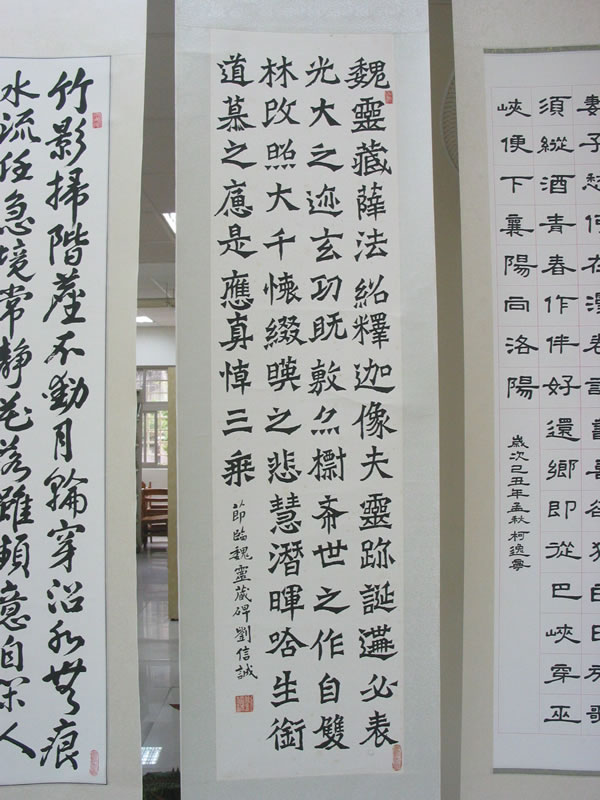 妻子愁何在漫卷詩書喜欲狂白日放歌
須縱酒青春作伴好還鄉即從巴峽穿巫
峽便下襄陽向洛陽
歲次己丑年孟秋柯逸
魏靈藏薛法紹釋迦像夫靈跡誕遘必表
光大之迹玄功既敷亦檦希世之作自雙
林改照大千懷綴暎之悲慧潛暉哈生銜
道慕之是應真悼三乘
節臨魏靈藏碑劉信誠
竹影掃階塵不動月輪穿沼水無痕
水流任急境常靜花落雖頻意自閑人